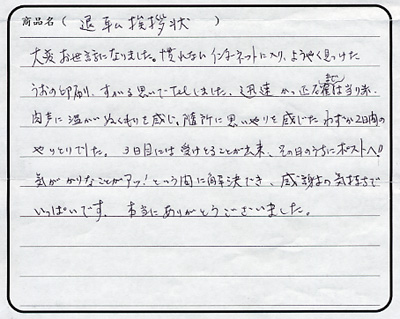 商品名（ 退転挨拶状 ）
大変お世話になりました。慣れないインターネットに入り、ようやく見つけた
うおの印刷、すがる思いでTelしました。迅速かつ正確は当り前、
肉声に温かいぬくもりを感じ、随所に思いやりを感じたわずか2日間の
やりとりでした。3日目には受けとることが出来、その日のうちにポストへ!!
気がかりなことがアッ!という間に解決でき、感謝の気持ちで
いっぱいです。本当にありがとうございました。